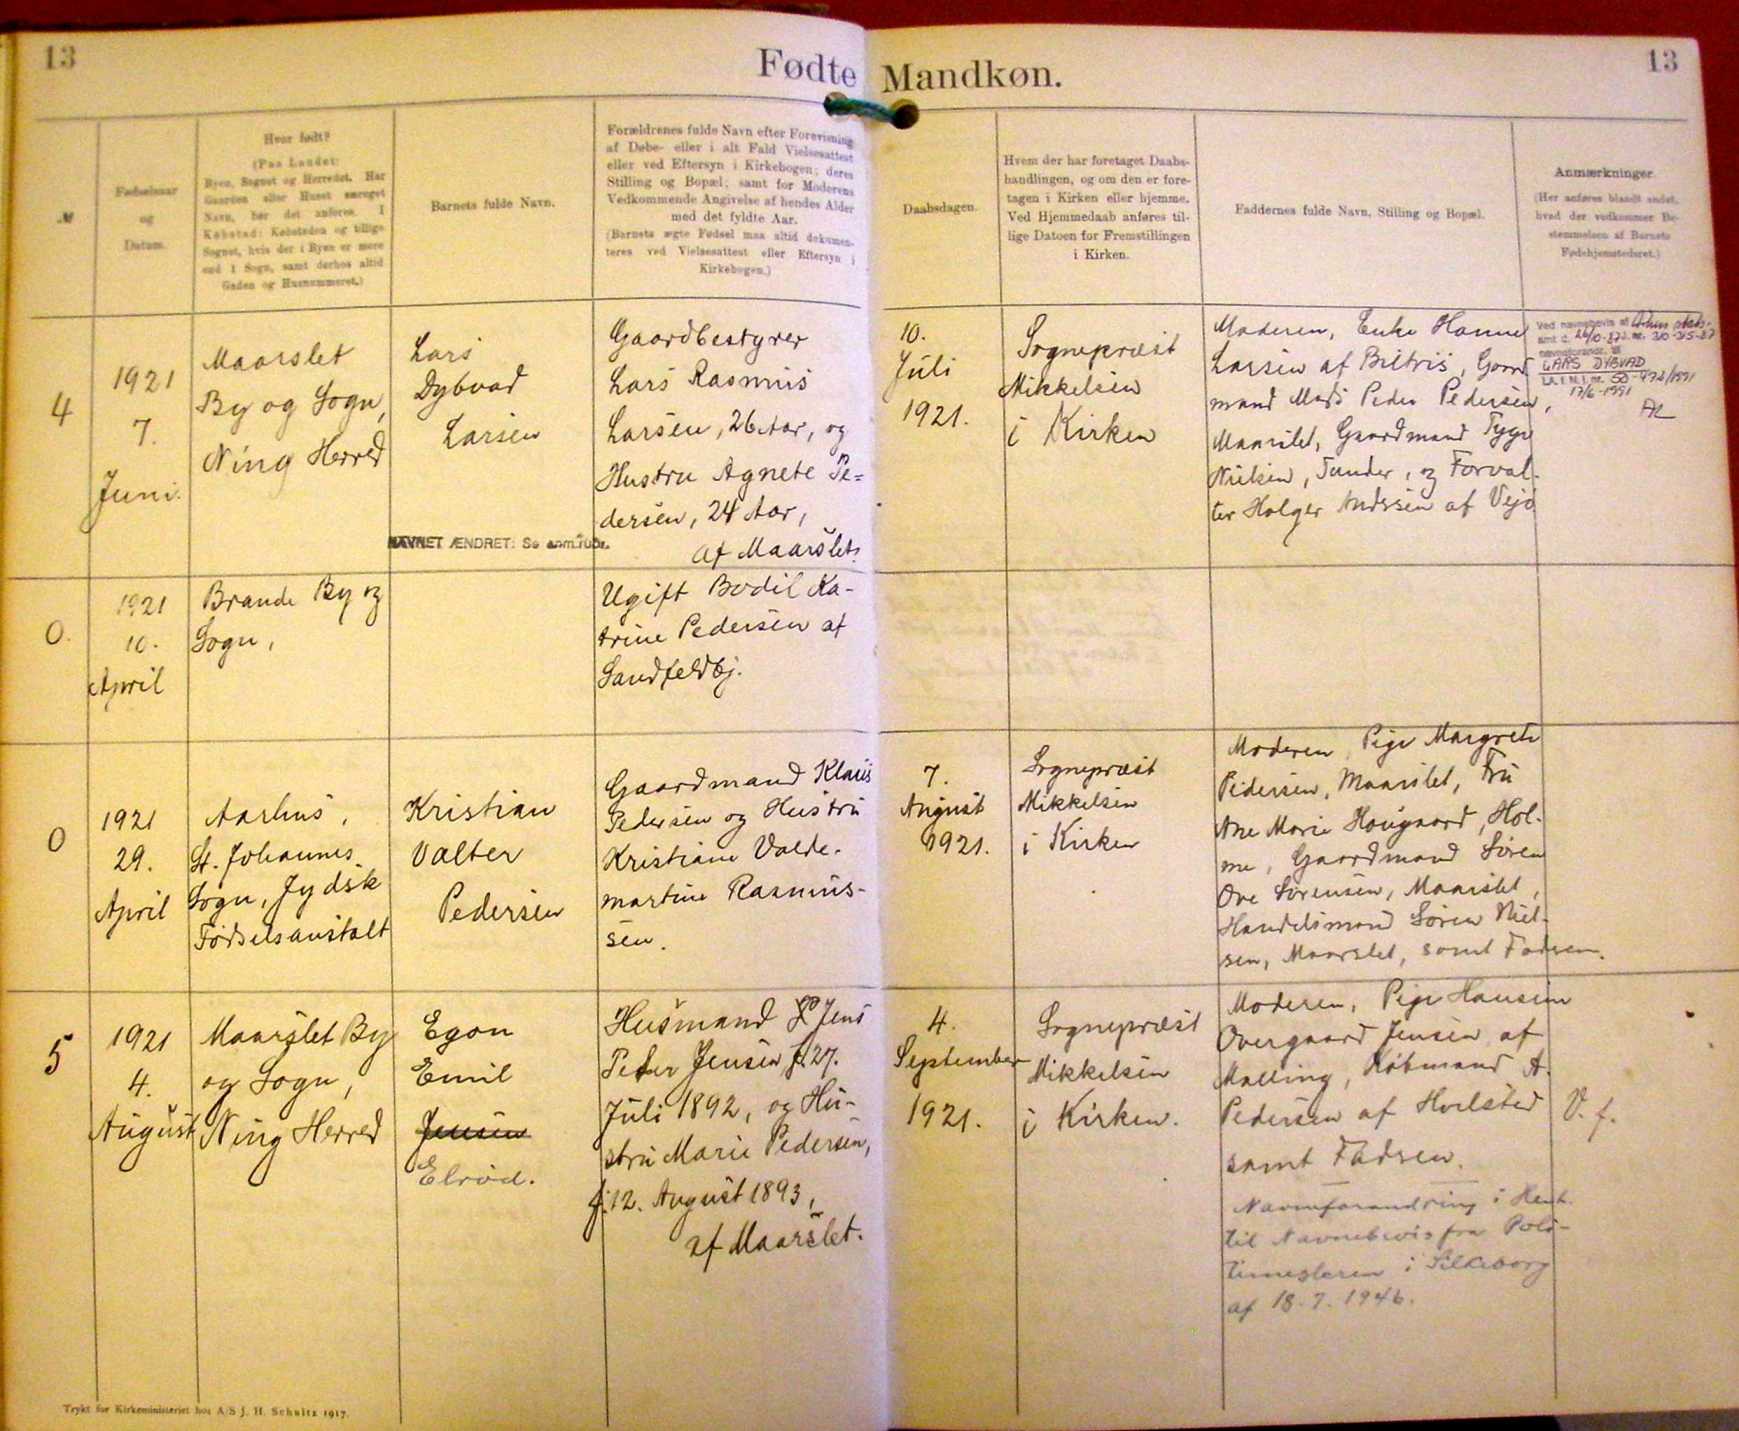 13
Fødte Mandkøn.
13
№
Fødselsaar
og
Datum.
Hvor født?
(Paa Landet:
Byen, Sognet og Herredet. Har
Gaarden eller Huset særeget
Navn, bør det anføres. I
Købstad: Købstaden og tillige
Sognet, hvis der i Byen er mere
end 1 Sogn, samt derhos altid
Gaden og Husnummeret.)
Barnets fulde Navn.
Forældrenes fulde Navn efter Forevisning
af Døbe- eller i alt Fald Vielsesattest
eller ved Eftersyn i Kirkebogen; deres
Stilling og Bopæl; samt for Moderens
Vedkommende Angivelse af hendes Alder
med det fyldte Aar.
(Barnets ægte Fødsel maa altid dokumen-
teres ved Vielsesattest eller Eftersyn i
Kirkebogen.)
Daabsdagen.
Hvem der har foretaget Daabs-
handlingen, og om den er fore-
tagen i Kirken eller hjemme.
Ved Hjemmedaab anføres til-
lige Datoen for Fremstillingen
i Kirken.
Faddernes fulde Navn, Stilling og Bopæl.
Anmærkninger
(Her anføres blandt andet,
hvad der vedkommer Be-
stemmelsen af Barnets
Fødehjemstedsret.)
4
1921
7.
Juni.
Maarslet
By og Sogn,
Ning Herred
Lars
Dybvad
Larsen
NAVNET ÆNDRET: Se anm.rubr.
Gaardbestyrer
Lars Rasmus
Larsen, 26 Aar, og
Hustru Agnete Pe=
dersen, 24 Aar,
af Maarslet.
10.
Juli
1921.
Sognepræst
Mikkelsen
i Kirken
Moderen, Enke Hanne
Larsen af Beltris, Gaard
mand Mads Peder Pedersen,
Maarslet, Gaardmand Tyge
Nielsen, Tander, og Forval-
ter Holger Andersen af Vejö
Ved navnebevis af Århus stats-
amt d. 26/10-87 j. nr. 310-315-87
navneforandr. til
LARS DYBVAD
17/6-1991
1921
10.
April
Brande By og
Sogn,
Ugift Bodil Ka-
trine Pedersen af
Sandfeldbj.
0
1921
29.
April
Aarhus,
St. Johannes
Sogn, Jydsk
Fødselsanstalt
Kristian
Valter
Pedersen
Gaardmand Klaus
Pedersen og Hustru
Kristiane Valde-
martine Rasmus-
sen.
7.
August
1921.
Sognepræst
Mikkelsen
i Kirken
Moderen, Pige Margrete
Pedersen, Maarslet, Fru
Ane Marie Hougaard, Hol-
me, Gaardmand Søren
Ove Sørensen, Maarslet,
Handelsmand Søren Niel-
sen, Maarslet, samt Faderen.
5
1921
4.
August
Maarslet By
og Sogn,
Ning Herred
Egon
Emil
Jensen
Elrød.
Husmand Jens
Peder Jensen, f. 27.
Juli 1892, og Hu-
stru Marie Pedersen,
f. 12. August 1893,
af Maarslet.
4.
September
1921.
Sognepræst
Mikkelsen
i Kirken.
Moderen, Pige Hansine
Overgaard Jensen af
Malling, Købmand A.
Pedersen af Hvilsted
samt Faderen.
Navneforandring i Henh.
til Navnebevis fra Poli-
timesteren i Silkeborg
af 18.7.1946.
V. f.
Trykt for Kirkeministeriet hos A/S J. H. Schultz 1917.